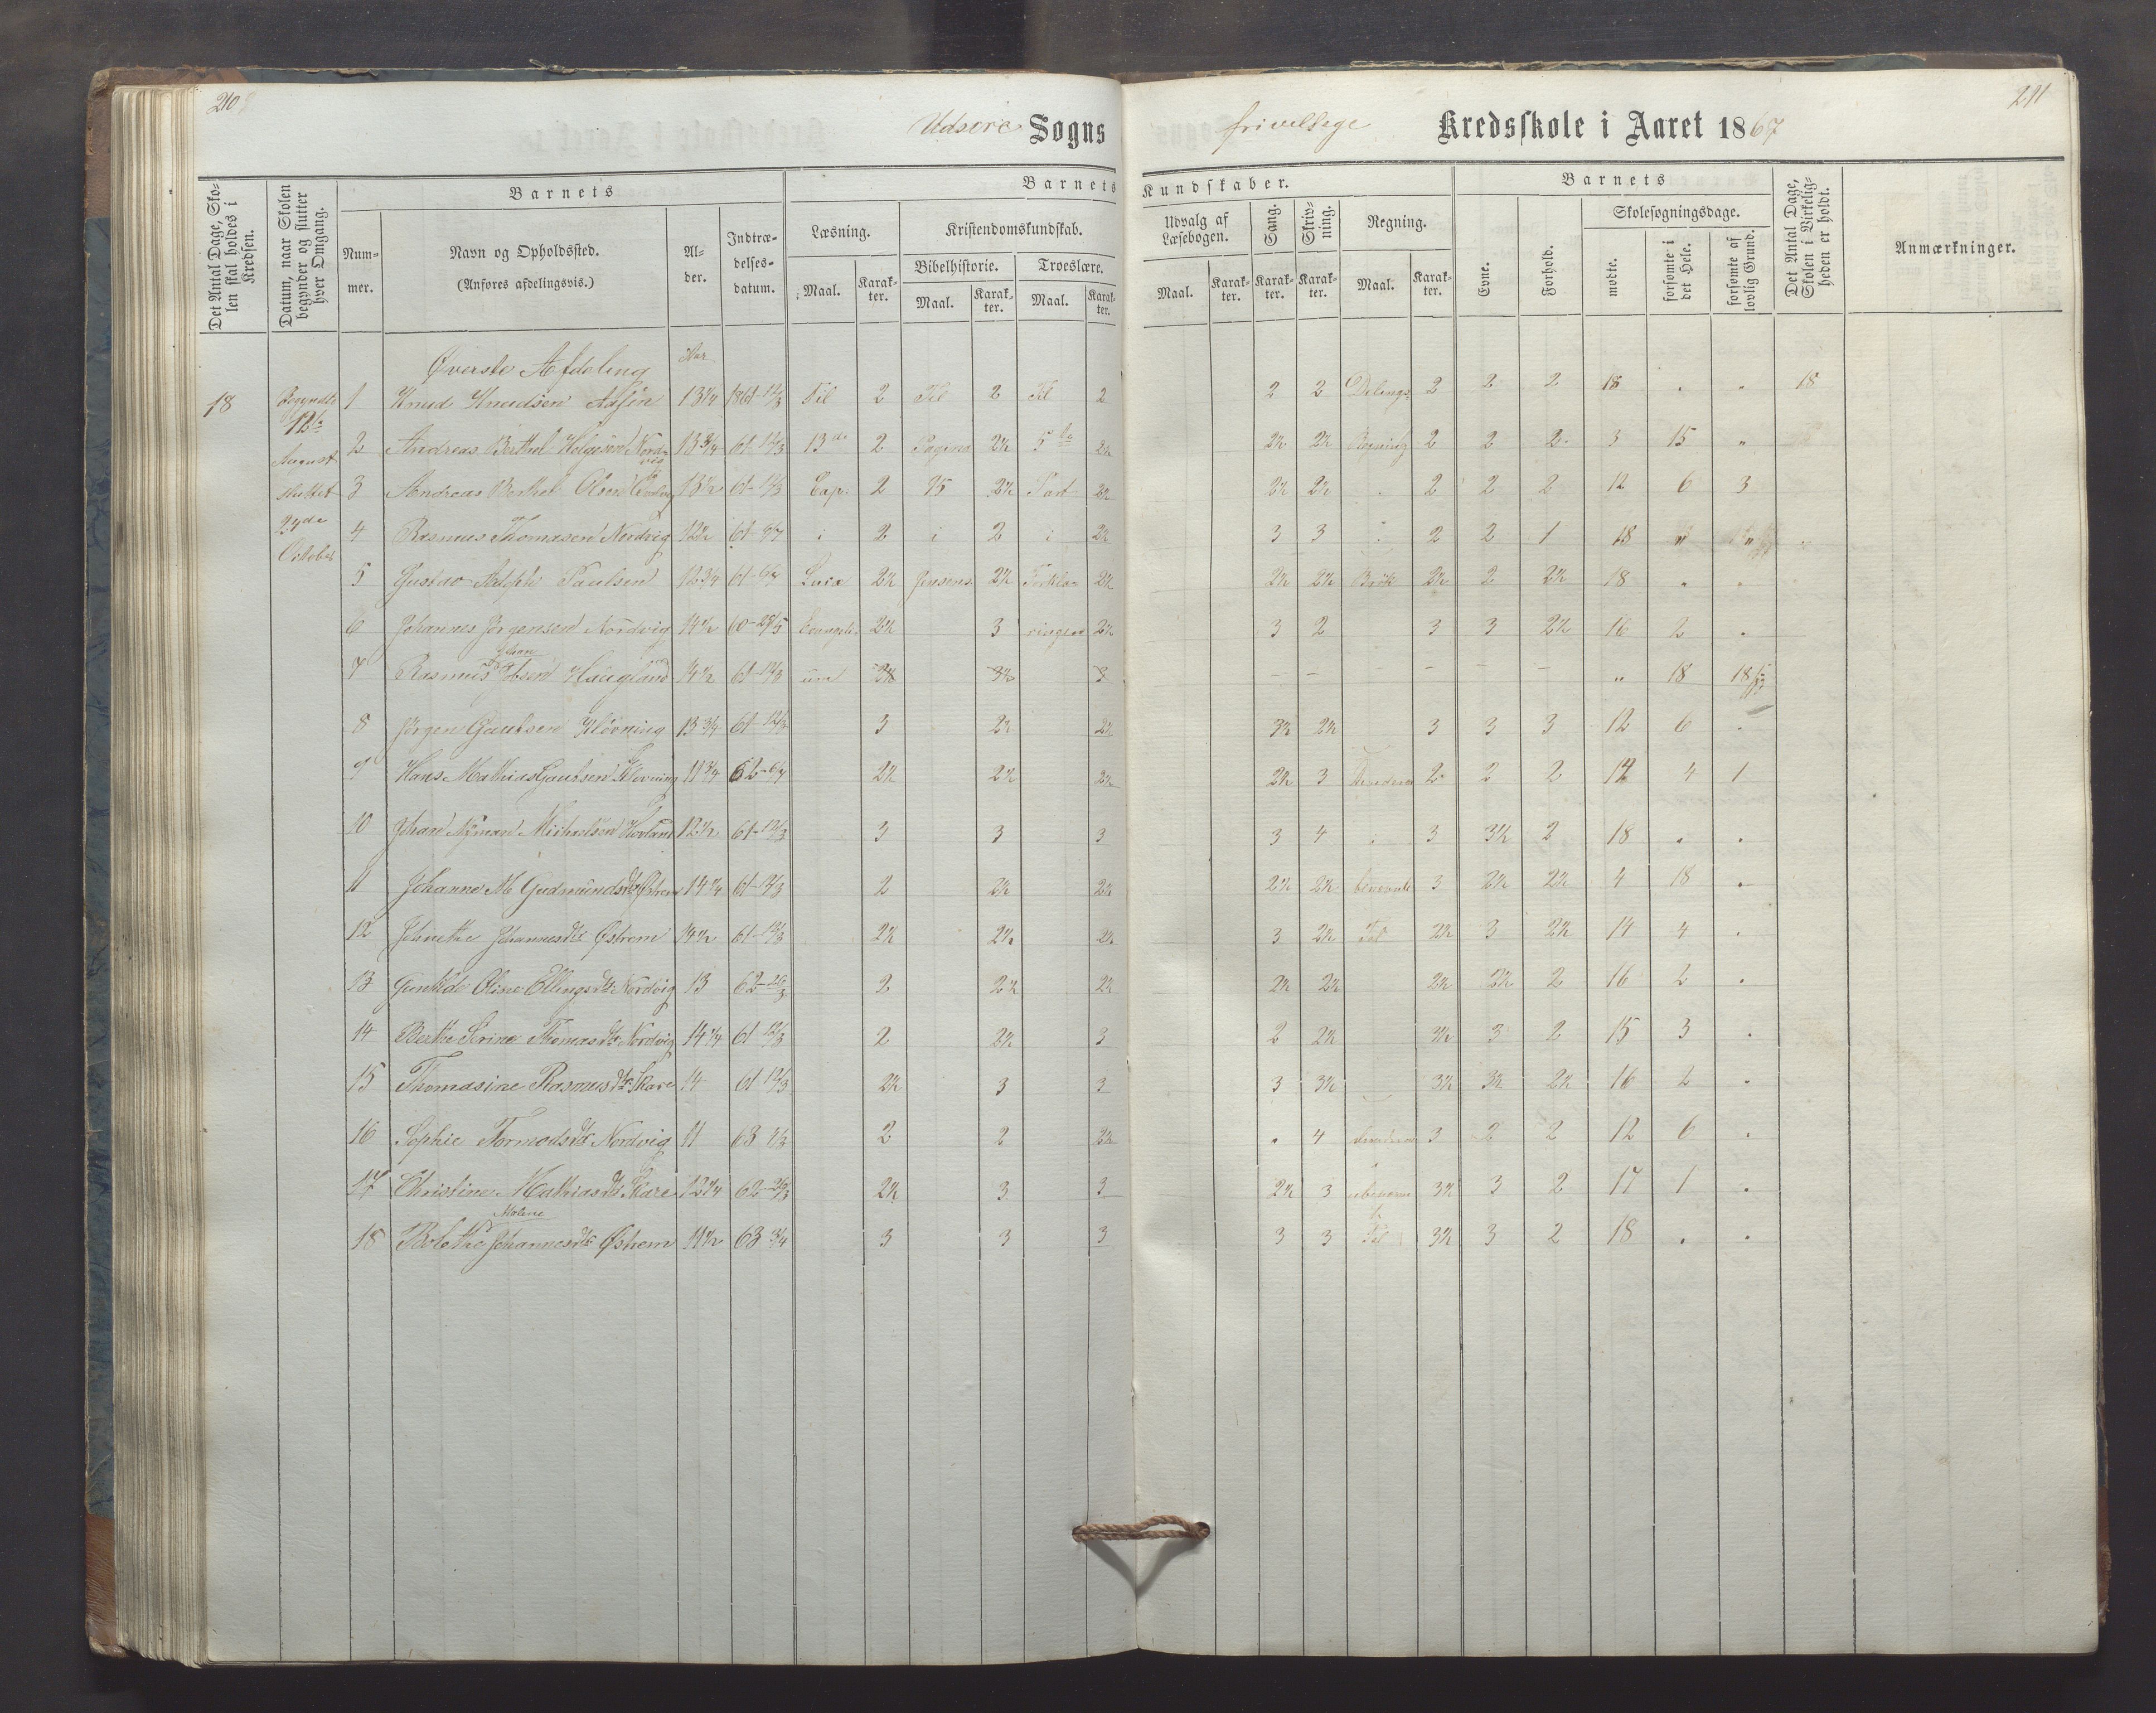 210
211
Udsire Sogns frivillige Kredsskole i Aaret 1867
Det Antal Dage, Skolen skal holdes i Kredsen.
Datum, naar Skolen begynder og slutter hver Omgang.
Barnets
Nummer.
Navn og Opholdssted. (Anføres afdelingsvis.)
Alder.
Indtrædelsesdatum.
Barnets Kundskaber.
Læsning.
Maal. Karakter.
Kristendomskundskab.
Bibelhistorie. Troeslære.
Maal. Karakter. Maal. Karakter.
Udvalg af Læsebogen.
Maal. Karakter.
Sang. Karakter.
Skrivning. Karakter.
Regning.
Maal. Karakter.
Barnets
Evne.
Forhold.
Skolesøgningsdage.
mødte.
forsømte i det Hele.
forsømte af lovlig Grund.
Det Antal Dage, Skolen i Virkeligheden er holdt.
Anmærkninger.
Øverste Afdeling Aar
18 Begyndte 1 Knud Knudsen 13 1/4 1861-12/3 Til 2 Til 2 Til 2 2 2 Delings- 2 2 2 18 . . 18
12te August 2 Andreas Berthel Helgesen Nordvig 13 3/4 61-12/3 13de 2 Pagina 2 1/2 5te 2 1/2 2 1/2 2 1/2 Regning 2 2 2 3 15 "
sluttet 3 Andreas Berthel Olsen 13 1/2 61-12/3 Cap. 2 95 2 1/2 Part 2 1/2 2 1/2 2 1/2 . 2 2 2 12 6 3
October 4 Rasmus Thomasen Nordvig 12 1/2 61-6/7 i 2 i 2 i 2 1/2 3 3 i 2 2 1 18 "
5 Gustav Adolph Paulsen 12 3/4 61-6/7 Lucæ 2 1/2 Jensens 2 1/2 Forkla- 2 1/2 2 1/2 2 1/2 Brøk 2 1/2 2 2 1/2 18 . .
6 Johannes Jørgensen Nordvig 14 1/2 60-28/5 Evangeli- 2 1/2 3 ringen 2 1/2 3 2 3 3 2 1/2 16 2 .
7 Rasmus Johan Haugland 14 1/2 61-12/3 um 3 1/2 3 1/2 3 - - - - - - " 18 18
8 Jørgen Gautsen Kløvning 13 3/4 61-12/3 3 2 1/2 2 1/2 3 1/2 2 1/2 3 3 3 12 6 .
9 Hans Mathias Gautsen Kløvning 11 3/4 62-6/7 2 1/2 2 1/2 2 1/2 2 1/2 3 2 2 2 14 4 1
10 Johan Nyman Michaelsen Hovland 12 1/2 61-12/3 3 3 3 3 4 . 3 3 1/2 2 18 . .
11 Johanne M. Gudmundsdtr Østrem 14 1/4 61-12/3 2 2 1/2 2 1/2 2 1/2 2 1/2 benevnte 3 2 1/2 2 1/2 4 18 .
12 Johannesdtr Østrem 14 1/2 61-12/3 2 1/2 2 1/2 2 1/2 3 2 1/2 Tal 2 1/2 3 2 1/2 14 4 .
13 Gunhilde Oline Ellingsdtr Nordvig 13 62-26/3 2 2 1/2 2 1/2 2 1/2 2 1/2 2 1/2 2 1/2 2 16 2 .
14 Berthe Serine Thomasdtr Nordvig 14 1/4 61-12/3 2 2 1/2 3 2 2 1/2 3 1/2 3 2 15 3 .
15 Thomasine Rasmusdtr Skare 14 61-12/3 2 1/2 3 3 3 3 1/2 3 1/2 3 1/2 2 1/2 16 2 .
16 Sophie Tormodsdtr Nordvig 11 63 2 2 2 1/2 . 4 3 2 2 12 6 .
17 Christine Mathiasdtr Skare 12 1/4 62-26/3 2 1/2 3 3 2 1/2 3 ubenevn- 3 1/2 3 2 17 1 .
18 Bolethe Malene Johannesdtr Østrem 11 1/2 63 3 3 3 3 3 Tal 3 1/2 3 2 18 . .